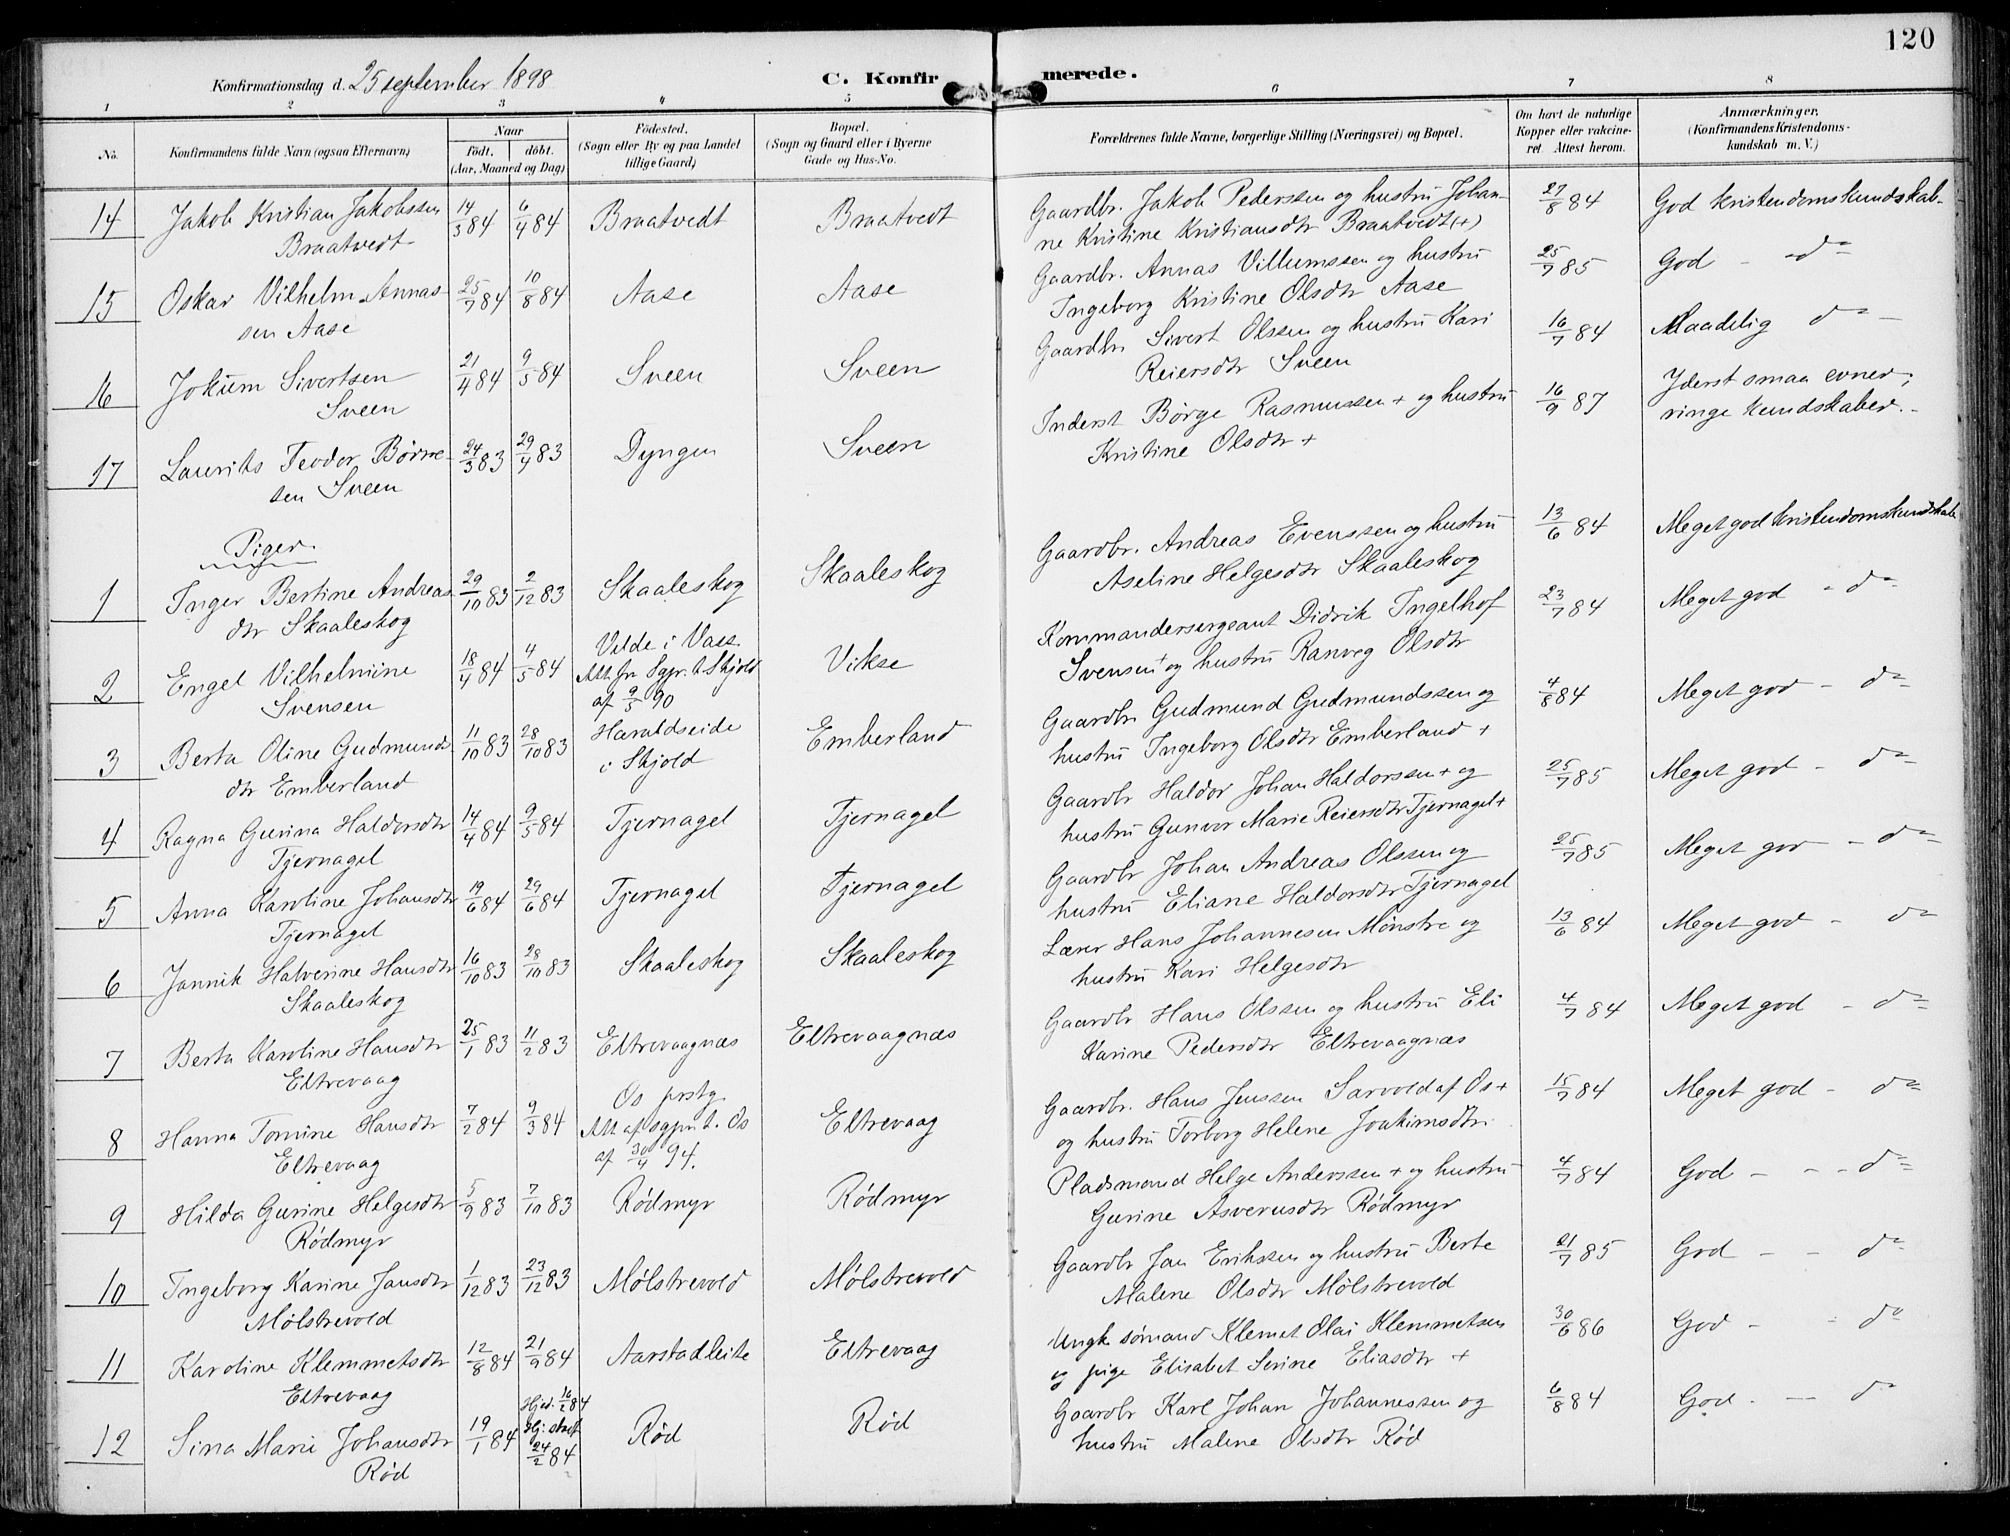 120
Konfirmationsdag d. 25 september 1898
C. Konfirmerede.
1 2 3 4 5 6 7 8
No. Konfirmandens fulde Navn (ogsaa Efternavn) Naar Födt. döbt. (Aar, Maaned og Dag) Födested. (Sogn eller By og paa Landet tillige Gaard) Bopæl. (Sogn og Gaard eller i Byerne Gade og Hus-No. Forældrenes fulde Navne, borgerlige Stilling (Næringsvei) og Bopæl. Om havt de naturlige Kopper eller vaccineret Attest herom. Anmærkninger. (Konfirmandens Kristendomskundskab m. V.)
14 Jakob Kristian Jakobssen 14/3 84 6/4 84 Braatvedt Braatvedt Gaardbr. Jakob Pederssen og hustru Johan- 27/8 84 God kristendomskundskab-
Braatvedt ne Kristine Kristiansdtr Braatvedt (+)
15 Oskar Vilhelm Annas- 25/7 84 10/8 84 Aase Aase Gaardbr. Annas Villumssen og hustru 25/7 85 God - do
sen Aase Ingeborg Kristine Olsdtr Aase
16 Jokum Sivertsen 21/4 84 9/5 84 Sveen Sveen Gaardbr Sivert Olssen og hustru Kari 16/7 84 Maadelig do -
Sveen Reiersdtr Sveen
17 Laurits Teodor Børre- 24/3 83 29/4 83 Dyngen Sveen Inderst Børge Rasmussen + og hustru 16/9 87 Yderst smaa evner;
sen Sveen Kristine Olsdtr + ringe kundskaber.-
Piger.
1 Inger Bertine Andreas 29/10 83 2/12 83 Skaaleskog Skaaleskog Gaardbr. Andreas Evenssen og hustru 13/6 84 Meget god kristendomskundskab
dtr Skaaleskog Aseline Helgesdtr Skaaleskog
2 Engel Vilhelmine 18/4 84 4/5 84 Velde i Vats Att. fr Sgpr. t. Skjold af 9/5 90 Vikse Kommandersergeant Didrik Ingelhof 23/7 84 Meget god - do
Svensen Svensen + og hustru Ranveg Olsdtr
3 Berta Oline Gudmunds 11/10 83 28/10 83 Haraldseide i Skjold Emberland Gaardbr Gudmund Gudmundssen og 4/8 84 Meget god - do
dtr Emberland hustru Ingeborg Olsdtr Emberland +
4 Ragna Gurina Haldorsdtr 14/4 84 9/5 84 Tjernagel Tjernagel Gaardbr Haldor Johan Haldorssen + og 25/7 85 Meget god - do
Tjernagel hustru Gunvor Marie Reiersdtr Tjernagel +
5 Anna Karoline Johansdtr 19/6 84 29/6 84 Tjernagel Tjernagel Gaardbr Johan Andreas Olssen og 25/7 85 Meget god - do
Tjernagel hustru Eliane Haldorsdtr Tjernagel
6 Jannik Halverine Hansdtr 16/10 83 28/10 83 Skaaleskog Skaaleskog Lærer Hans Johannesen Mønstre og 13/6 84 Meget god - do
Skaaleskog hustru Kari Helgesdtr
7 Berta Karoline Hansdtr 25/1 83 11/2 83 Eltrevaagnæs Eltrevaagnæs Gaardbr Hans Olssen og hustru Eli 4/7 84 Meget god - do
Eltrevaag Karine Pedersdtr Eltrevaagnæs
8 Hanna Tomine Hansdtr 7/2 84 9/3 84 Os prstg. Att af sgpr t. Os af 30/4 94. Eltrevaag Gaardbr. Hans Jenssen Sarvold af Os + 15/7 84 Meget god - do
Eltrevaag og hustru Torborg Helene Joakimsdtr.
9 Hilda Gurine Helgesdtr 5/9 83 7/10 83 Rødmyr Rødmyr Pladsmand Helge Anderssen + og hustru 4/7 84 God - - - do
Rødmyr Gurine Asverusdtr Rødmyr
10 Ingeborg Karine Jansdtr 1/12 83 23/12 83 Mølstrevold Mølstrevold Gaardbr Jan Erikssen og hustru Berte 21/7 85 God - - do
Mølstrevold Malene Olsdtr Mølstrevold
11 Karoline Klemmetsdtr 12/8 84 21/9 84 Aarstadleite Eltrevaag Ungk. sømand Klemet Olai Klemmetsen 30/6 86 God - - do
Eltrevaag og pige Elisabet Serine Eliasdtr +
12 Sina Marie Johansdtr 19/1 84 Hjed. 16/2 84 24/2 84 Rød Rød Gaardbr Karl Johan Johannessen og 6/8 84 God. - do
Rød hustru Malene Olsdtr Rød